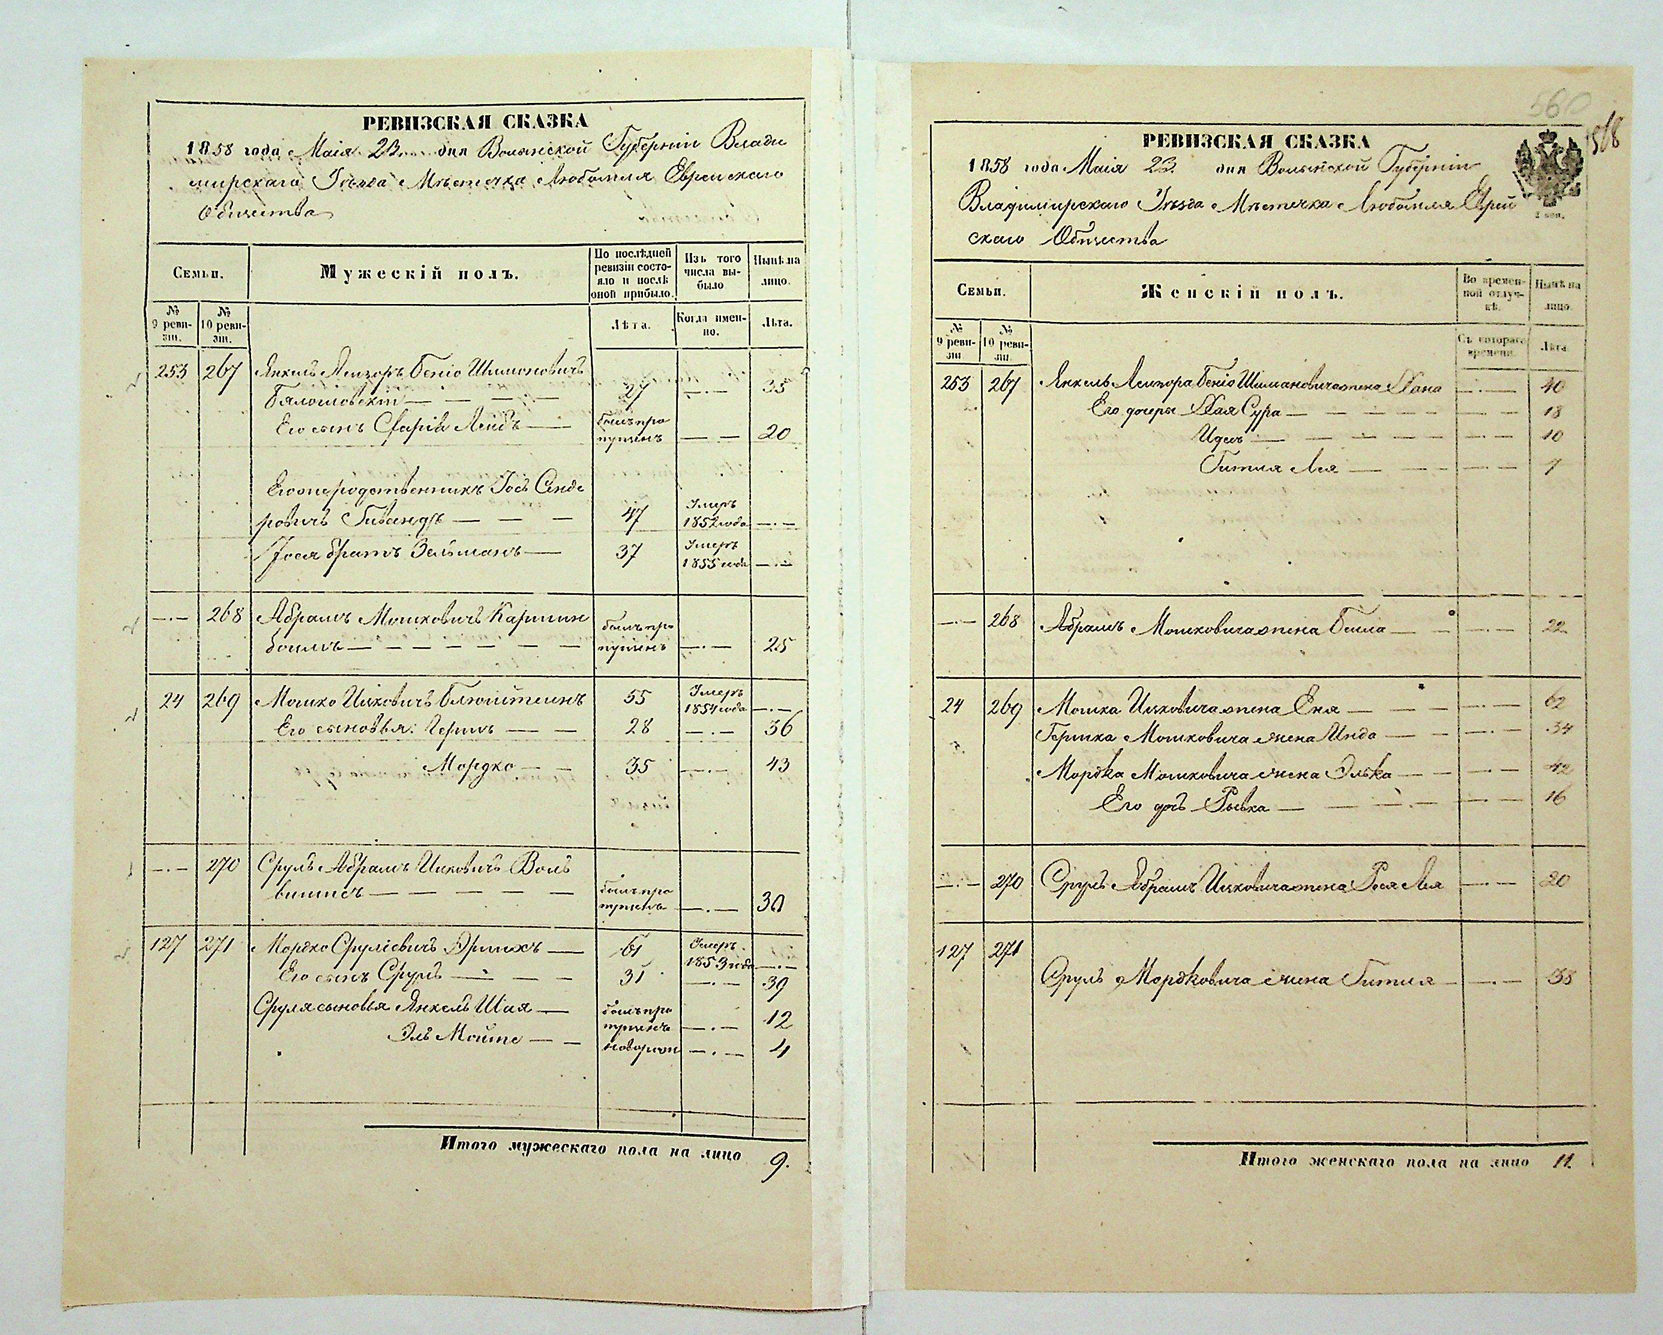 РЕВИЗСКАЯ СКАЗКА
1858 года Маія 23 дня Волынской Губерніи Влади
мирскаго Уѣзда Мѣстечка Любомля Еврейскаго
Общества
Семьи.
Мужескій полъ.
По послѣдней ревизіи состояло и послѣ оной прибыло.
Изъ того числа выбыло
Нынѣ на лицо.
№ 9 ревизіи.
№ 10 ревизіи.
Лѣта.
Когда именно.
Лѣта.
253 267 Янкель Лейзоръ Бенію Шимоновичъ
27 —·— 35
Его сынъ Лейбъ — былъ про
пущенъ — — 20
Его Іось Сенде
ровичъ — — — 47 Умеръ 1852 года —·—
Іося братъ Зейманъ — 37 Умеръ 1855 года —·—
—·— 268 Абрамъ Мошковичъ
былъ про
пущенъ —·— 25
24 269 Мошко Ицковичъ 55 Умеръ 1854 года —·—
Его сыновья: Гершъ — — 28 —·— 36
Мордко — — 35 —·— 43
—·— 270 Сруль Абрамъ Ицковичъ Воль
былъ про
пущенъ —·— 30
127 271 Мордко Сруліевичъ — 61 Умеръ 1853 года —·—
Его сынъ Сруль — — — 31 —·— 39
Сруля сыновья Янкель Шая — былъ про
пущенъ —·— 12
Эль — — новорож —·— 4
Итого мужескаго пола на лицо 9.
560
568
РЕВИЗСКАЯ СКАЗКА
1858 года Маія 23 дня Волынской Губерніи
Владимірскаго Уѣзда Мѣстечка Любомля Еврей
скаго Общества
Семьи.
Женскій полъ.
Во временной отлучкѣ.
Нынѣ на лицо.
№ 9 ревизіи
№ 10 ревизіи.
Съ котораго времени.
Лѣта.
253 267 Янкель Лейзора Бенію Шимановича жена Хана —·— 40
Его дочери Хая Сура — — — — — —·— 18
— — — — — — —·— 10
Гитля Лея — — — — —·— 7
—·— 268 Абрамъ Мошковича жена Бейла — — —·— 22
24 269 Мошка Ицковича жена Еня — — — —·— 62
Гершка Мошковича жена Инда — — —·— 34
Мордка Мошковича жена Элька — — —·— 42
Его дочь Рывка — — — — —·— 16
—·— 270 Сруль Абрамъ Ицковича жена Рося Лея —·— 20
127 271
Сруль Мордковича жена Гитля — —·— 38
Итого женскаго пола на лицо 11.